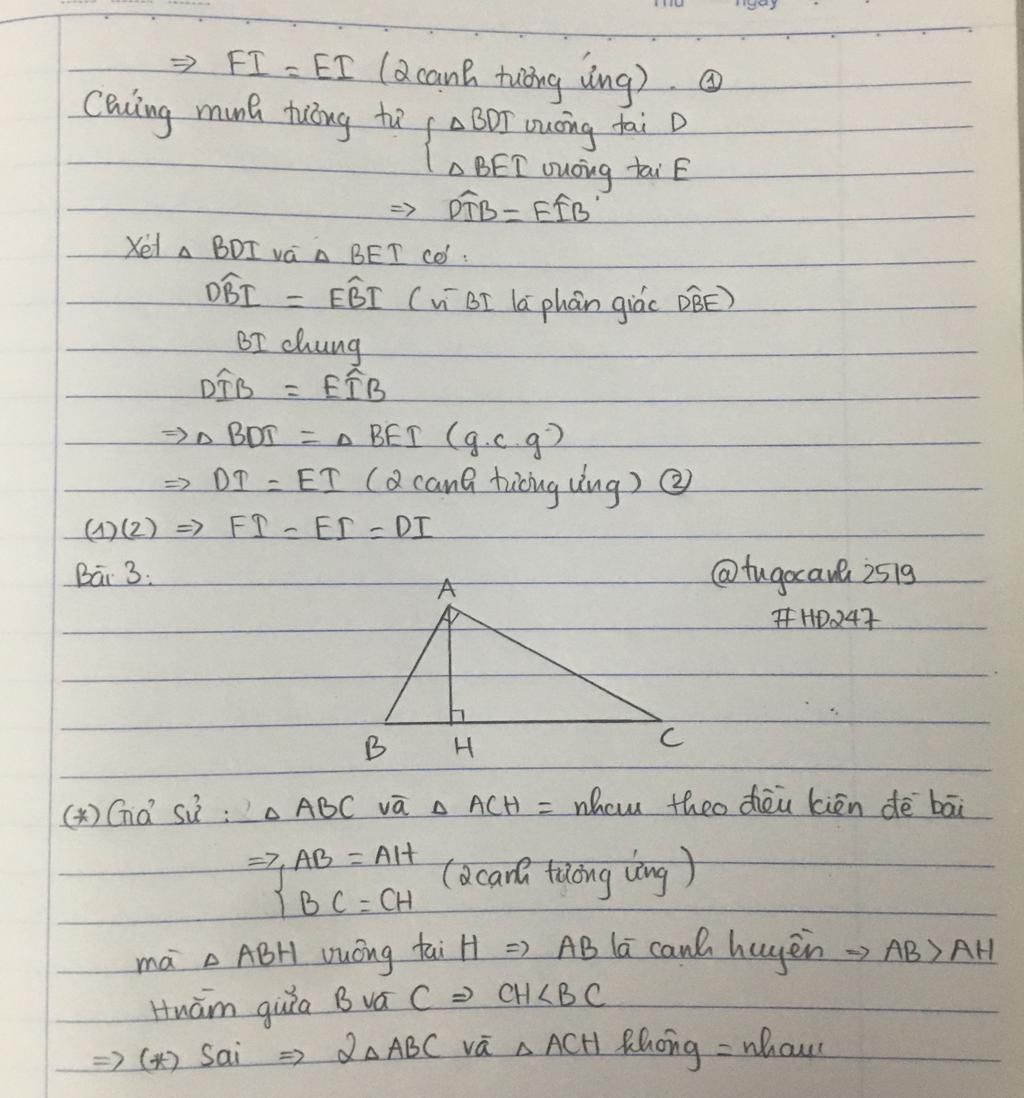 Thứ ngày
=> FI = EI (2 cạnh tương ứng). ①
Chứng minh tương tự { △ BDI vuông tại D
△ BET vuông tại E
=> DÎB = EÎB
Xét △ BDI và △ BEI có:
DB̂I = EB̂I (vì BI là phân giác DB̂E)
BI chung
DÎB = EÎB
=> △ BDI = △ BEI (g.c.g)
=> DI = EI (2 cạnh tương ứng) ②
(1)(2) => FI = EI = DI
Bài 3:
@tngocanh2519
#HD247
A
B H C
(*) Giả sử: △ ABC và △ ACH = nhau theo điều kiện đề bài
=> { AB = AH
BC = CH (2 cạnh tương ứng)
mà △ ABH vuông tại H => AB là cạnh huyền => AB > AH
H nằm giữa B và C => CH < BC
=> (*) Sai => 2 △ ABC và △ ACH không = nhau